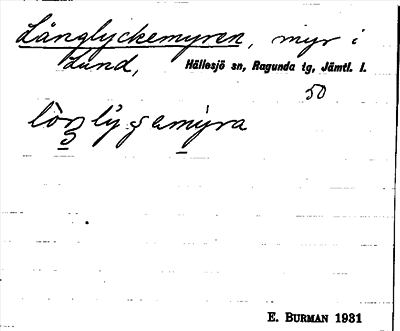 Långlyckemyren, myr i
Lund, Hällesjö sn, Ragunda tg, Jämtl. l.
50
E. BURMAN 1931